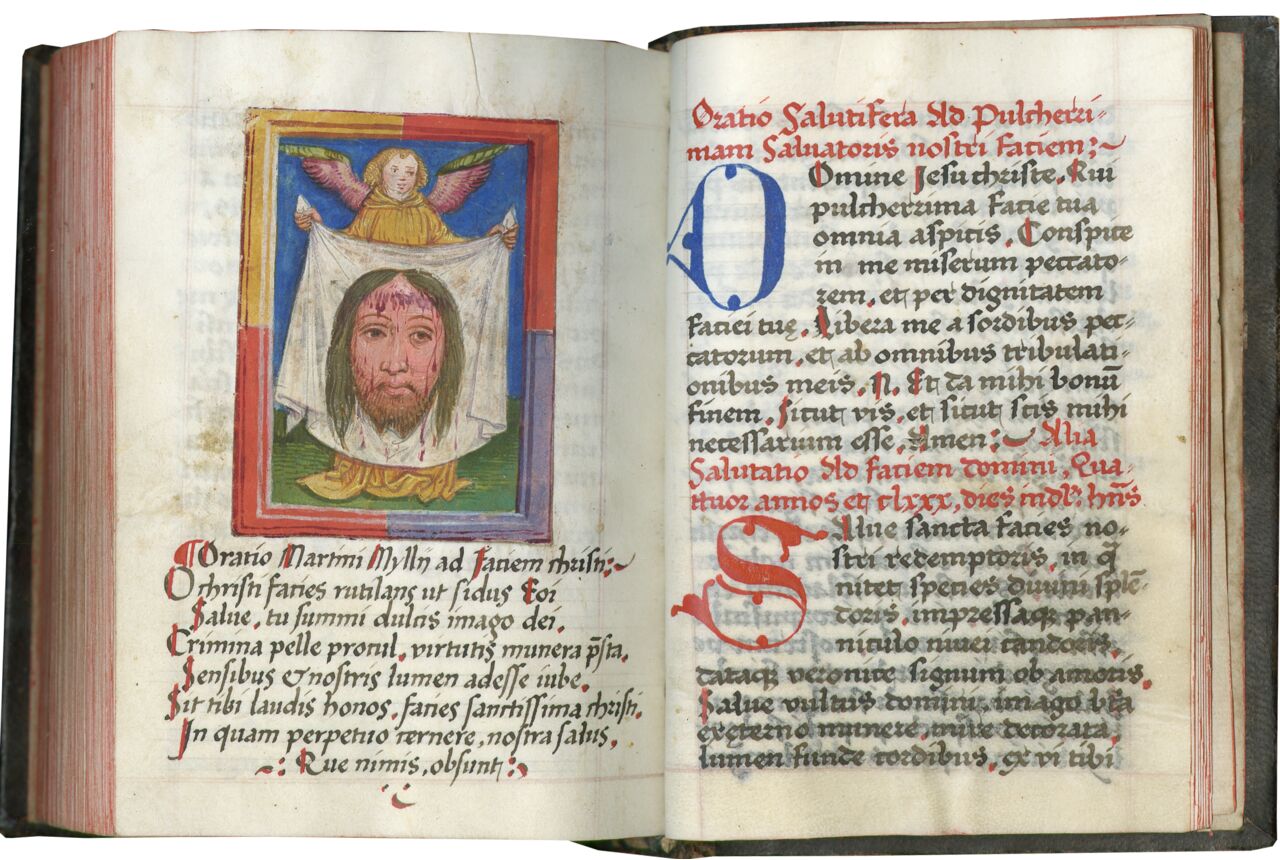 Oratio Martini Myllij ad Faciem christi:~
O christi facies rutilans ut sidus Eoi
Salue, tu summi dulcis imago dei.
Crimina pelle procul, virtutis munera p̄sta,
Sensibus & nostris lumen adesse iube.
Sit tibi laudis honos, facies sanctissima christi.
In quam perpetuo cernere, nostra salus.
Que nimis, obsunt
Oratio Salutifera Ad Pulcherri-
mam Saluatoris nostri Faciem:~
Domine Jesu christe, Qui
pulcherrima Facie tua
omnia aspicis, Conspice
in me miserum peccato-
rem, et per dignitatem
Faciei tuę, Libera me a sordibus pec-
catorum, et ab omnibus tribulati-
onibus meis, N. Et da mihi bonū
finem, sicut vis, et sicut scis mihi
necessarium esse, Amen:~ Alia
Salutatio Ad faciem domini, Qua-
ttuor annos et clxxx, dies indl: hn̄s
Salue sancta facies no-
stri redemptoris, in q̄
nitet species diuini splē-
doris, impressaqꝫ pan-
niculo niuei candoris,
dataqꝫ veronice signum ob amoris,
Salue vultus domini, imago bt̄a
ex ęterno munere, mire decorata,
lumen funde cordibus, ex vi tibi